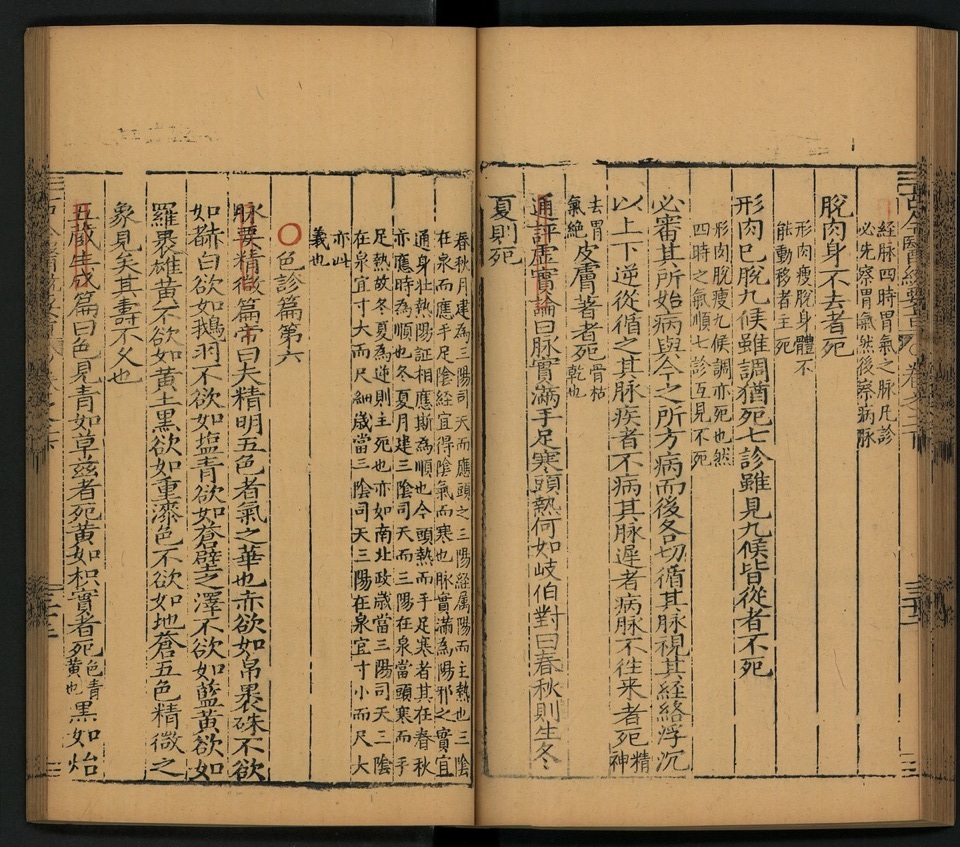 經脉四時胃氣之脉凡診
必先察胃氣然後察病脉
脫肉身不去者死
形肉瘦脫身體不
能動移者主死
形肉已脫九候雖調猶死七診雖見九候皆從者不死
形肉脫瘦九候調亦死也然
四時之氣順七診互見不死
必審其所始病與今之所方病而後各切循其脉視其経絡浮沉
以上下逆從循之其脉疾者不病其脉遲者病脉不往来者死精神
去胃
氣絶
皮膚著者死骨枯
乾也
通評虛實論曰脉實滿手足寒頭熱何如岐伯對曰春秋則生冬
夏則死
春秋月建為三陽司天而應頭之三陽経属陽而主熱也三陰
在泉而應手足陰経宜得陰氣而寒也脉實滿為陽邪之實宜
通身壮熱陽証相應斯為順也今頭熱而手足寒者其在春秋
亦應時為順也冬夏月建三陰司天而三陽在泉當頭寒而手
足熱故冬夏為逆則主死也亦如南北政歲當三陽司天三陰
在泉宜寸大而尺細歲當三陰司天三陽在泉宜寸小而尺大
亦此
義也
〇色診篇第六
脉要精微篇帝曰夫精明五色者氣之華也赤欲如帛裹硃不欲
如赭白欲如鵝羽不欲如塩青欲如蒼壁之澤不欲如藍黄欲如
羅裹雄黄不欲如黄土黒欲如重漆色不欲如地蒼五色精微之
象見矣其壽不久也
五蔵生成篇曰色見青如草兹者死黄如枳實者死色青
黄也黒如炲